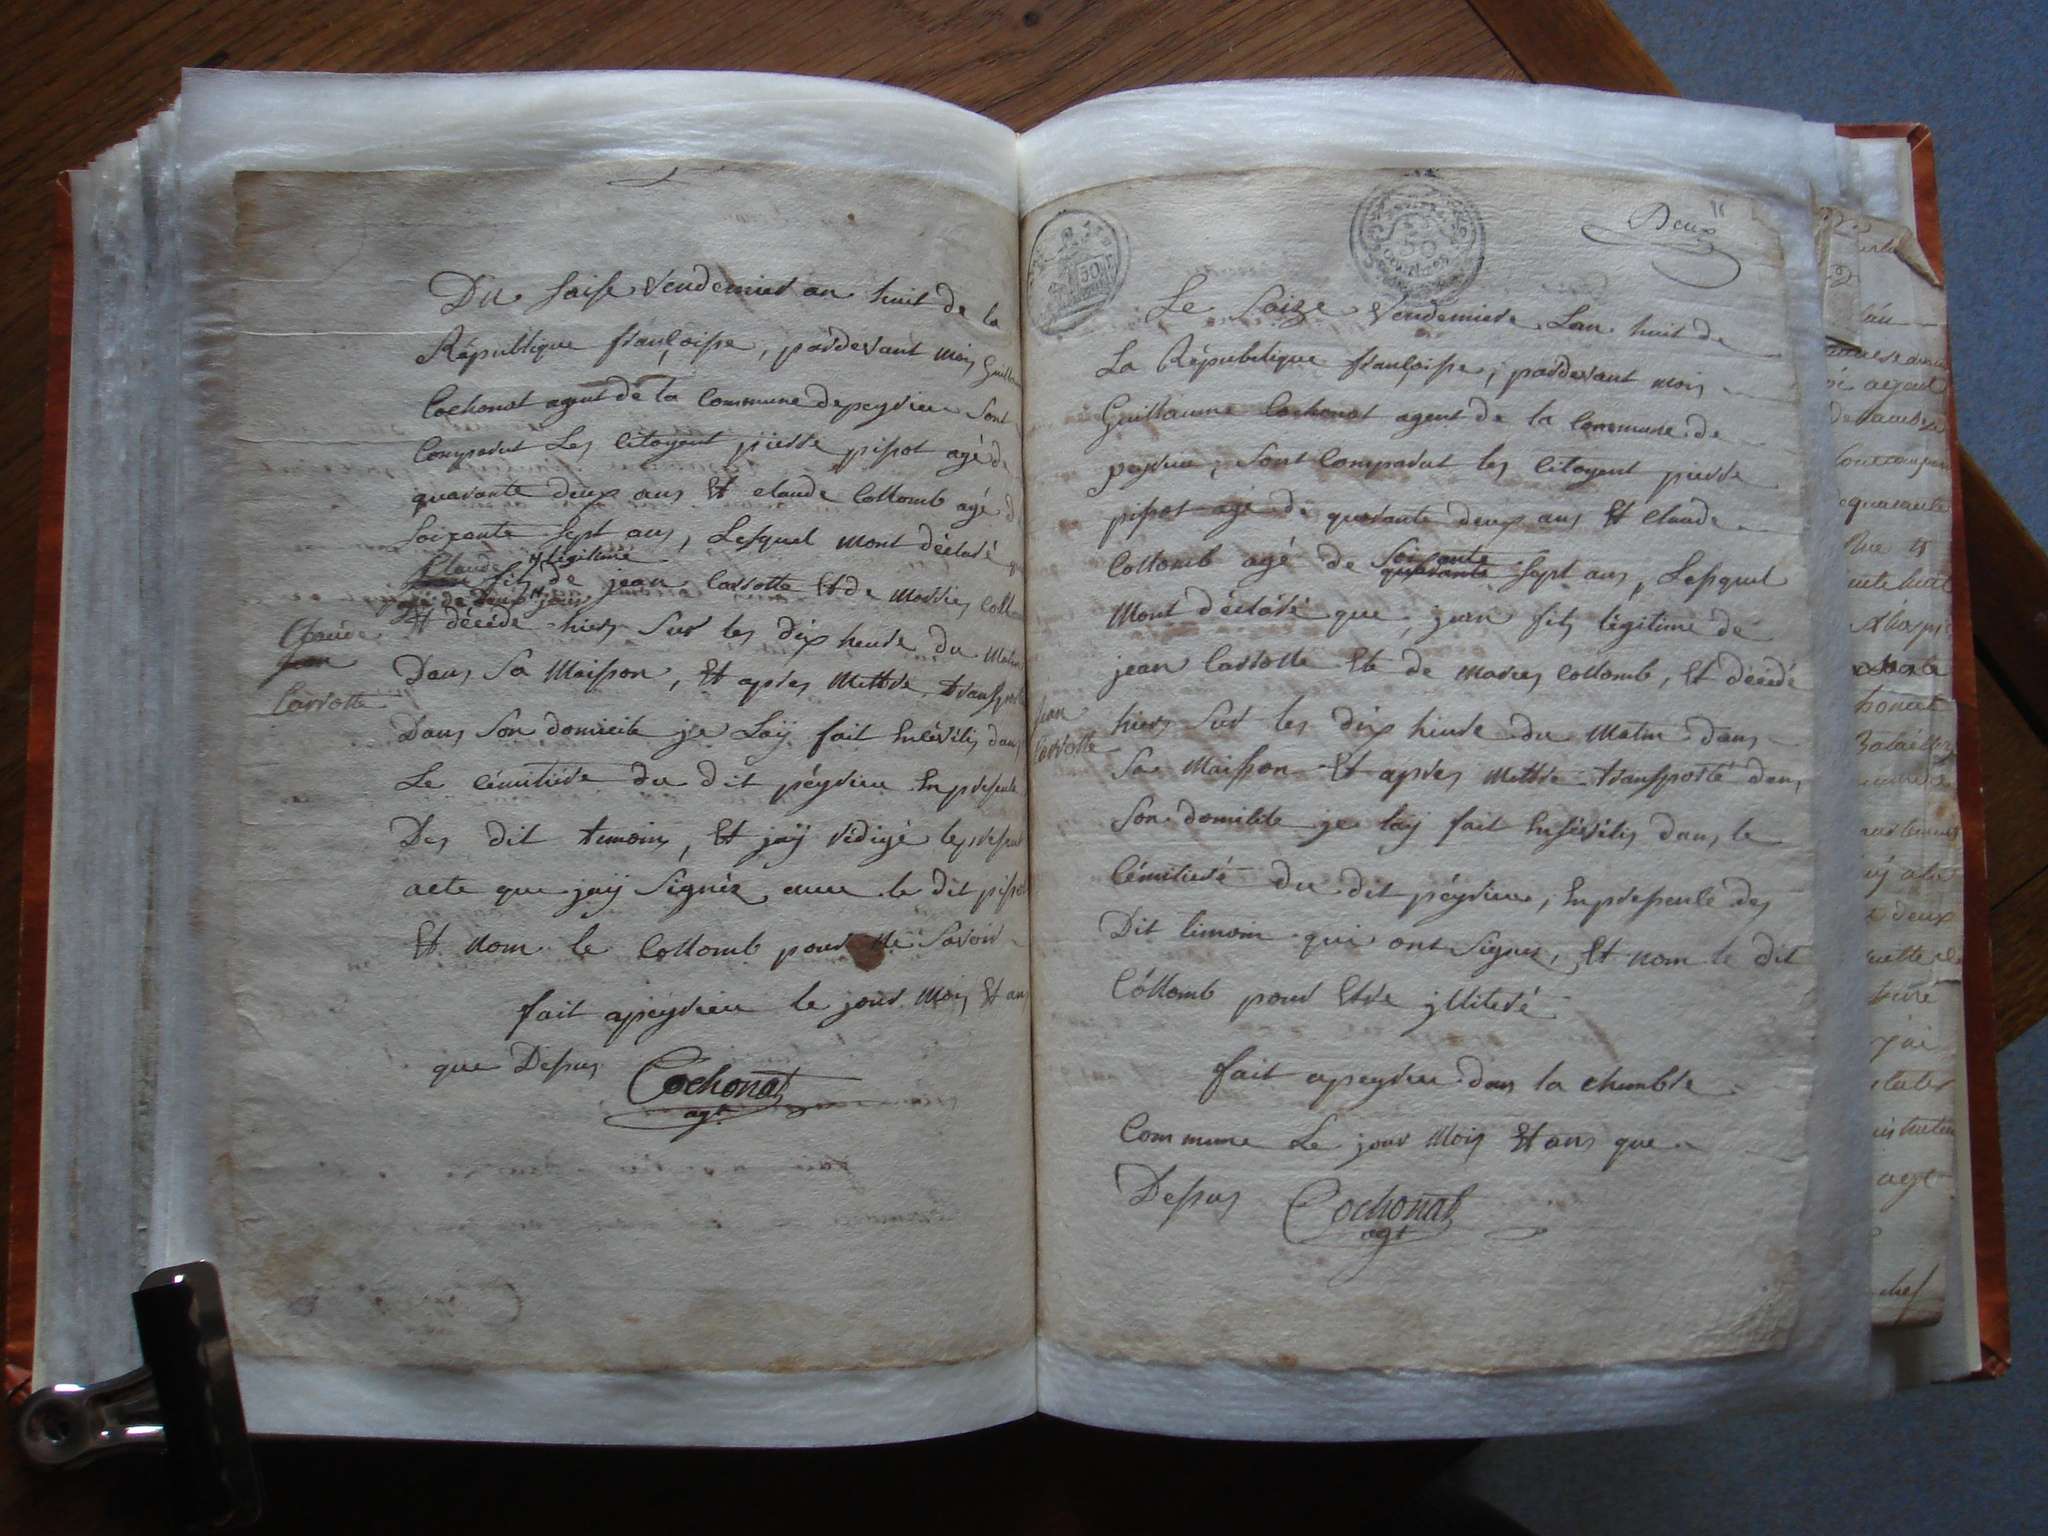 Du saise vendemier an huit de la
République françoisse, pardevant moy Guillaume
Cochonat agent de la Commune de peyrieu sont
Comparut Les Citoyent pierre pissot agé de
quarante deux ans Et claude Collomb agé d
Soixante sept ans, Lesquel mont déclaré que
Claude legitime
fils de jean Carrotte Et de Maries Collomb
agé de deux jours
Et décédé hiers Sur les dix heure du Matin
Claude
Jean
Carrotte
Dans Sa Maisson, Et apres Mettre transporté
Dans Son domicile je Laÿ fait Enlévélis dans
Le Cémitiere du dit péyrieu En presente
Des dit temoins, Et jaÿ rédigé le present
acte que jaÿ Signéz avec le dit pissot
Et nom le Collomb pour ne Savoir
fait apeyrieu le jour Mois Et an
que Dessus
Cochonat
agt
Deux
50
Le Saize Vendemiere Lan huit de
La République françoisse, pardevant mois
Guillaume Cochonat agent de la Commune de
peyrieu, Sont Comparut les Citoyent pierre
pissot agé de quarante deux ans Et Claude
Collomb agé de Soixante quarante Sept ans, Lesquel
Mont déclaré que, jean fils légitime de
jean Carrotte Et de Maries Collomb, Et décédé
Jean
Carrotte
hiers Sur les dix heure du Matin dans
Sa Maisson Et apres Mettre transporté dans
Son domilile je laÿ fait Ensévélis dans le
Cémitieré du dit péyrieu, En presente des
Dit timoin qui ont Signez, Et nom le dit
Cóllomb pour Etre jlliteré
fait apeyrieu dans la chambre
Commune Le jour Mois Et ans que
Dessus
Cochonat
agt